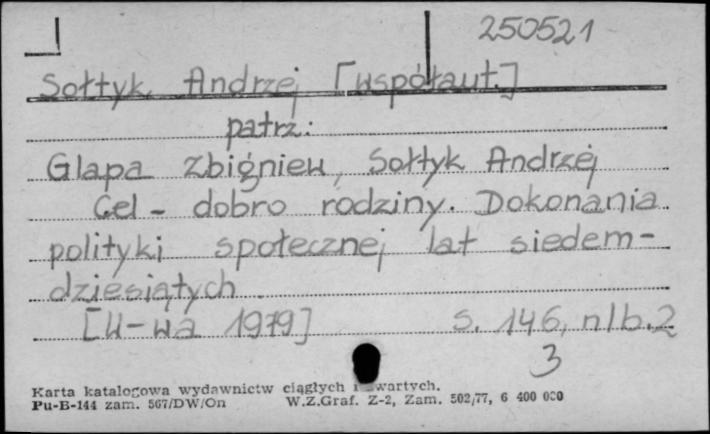 250521
Sołtyk, Andrzej [współaut.]
patrz:
Glapa Zbigniew, Sołtyk Andrzej
Cel - dobro rodziny. Dokonania
polityki społecznej lat siedem-
dziesiątych.
[W-wa 1979] s. 146, nlb. 2
3
Karta katalogowa wydawnictw ciągłych i zwartych.
Pu-B-144 zam. 567/DW/On W.Z.Graf. Z-2, Zam. 502/77, 6 400 000